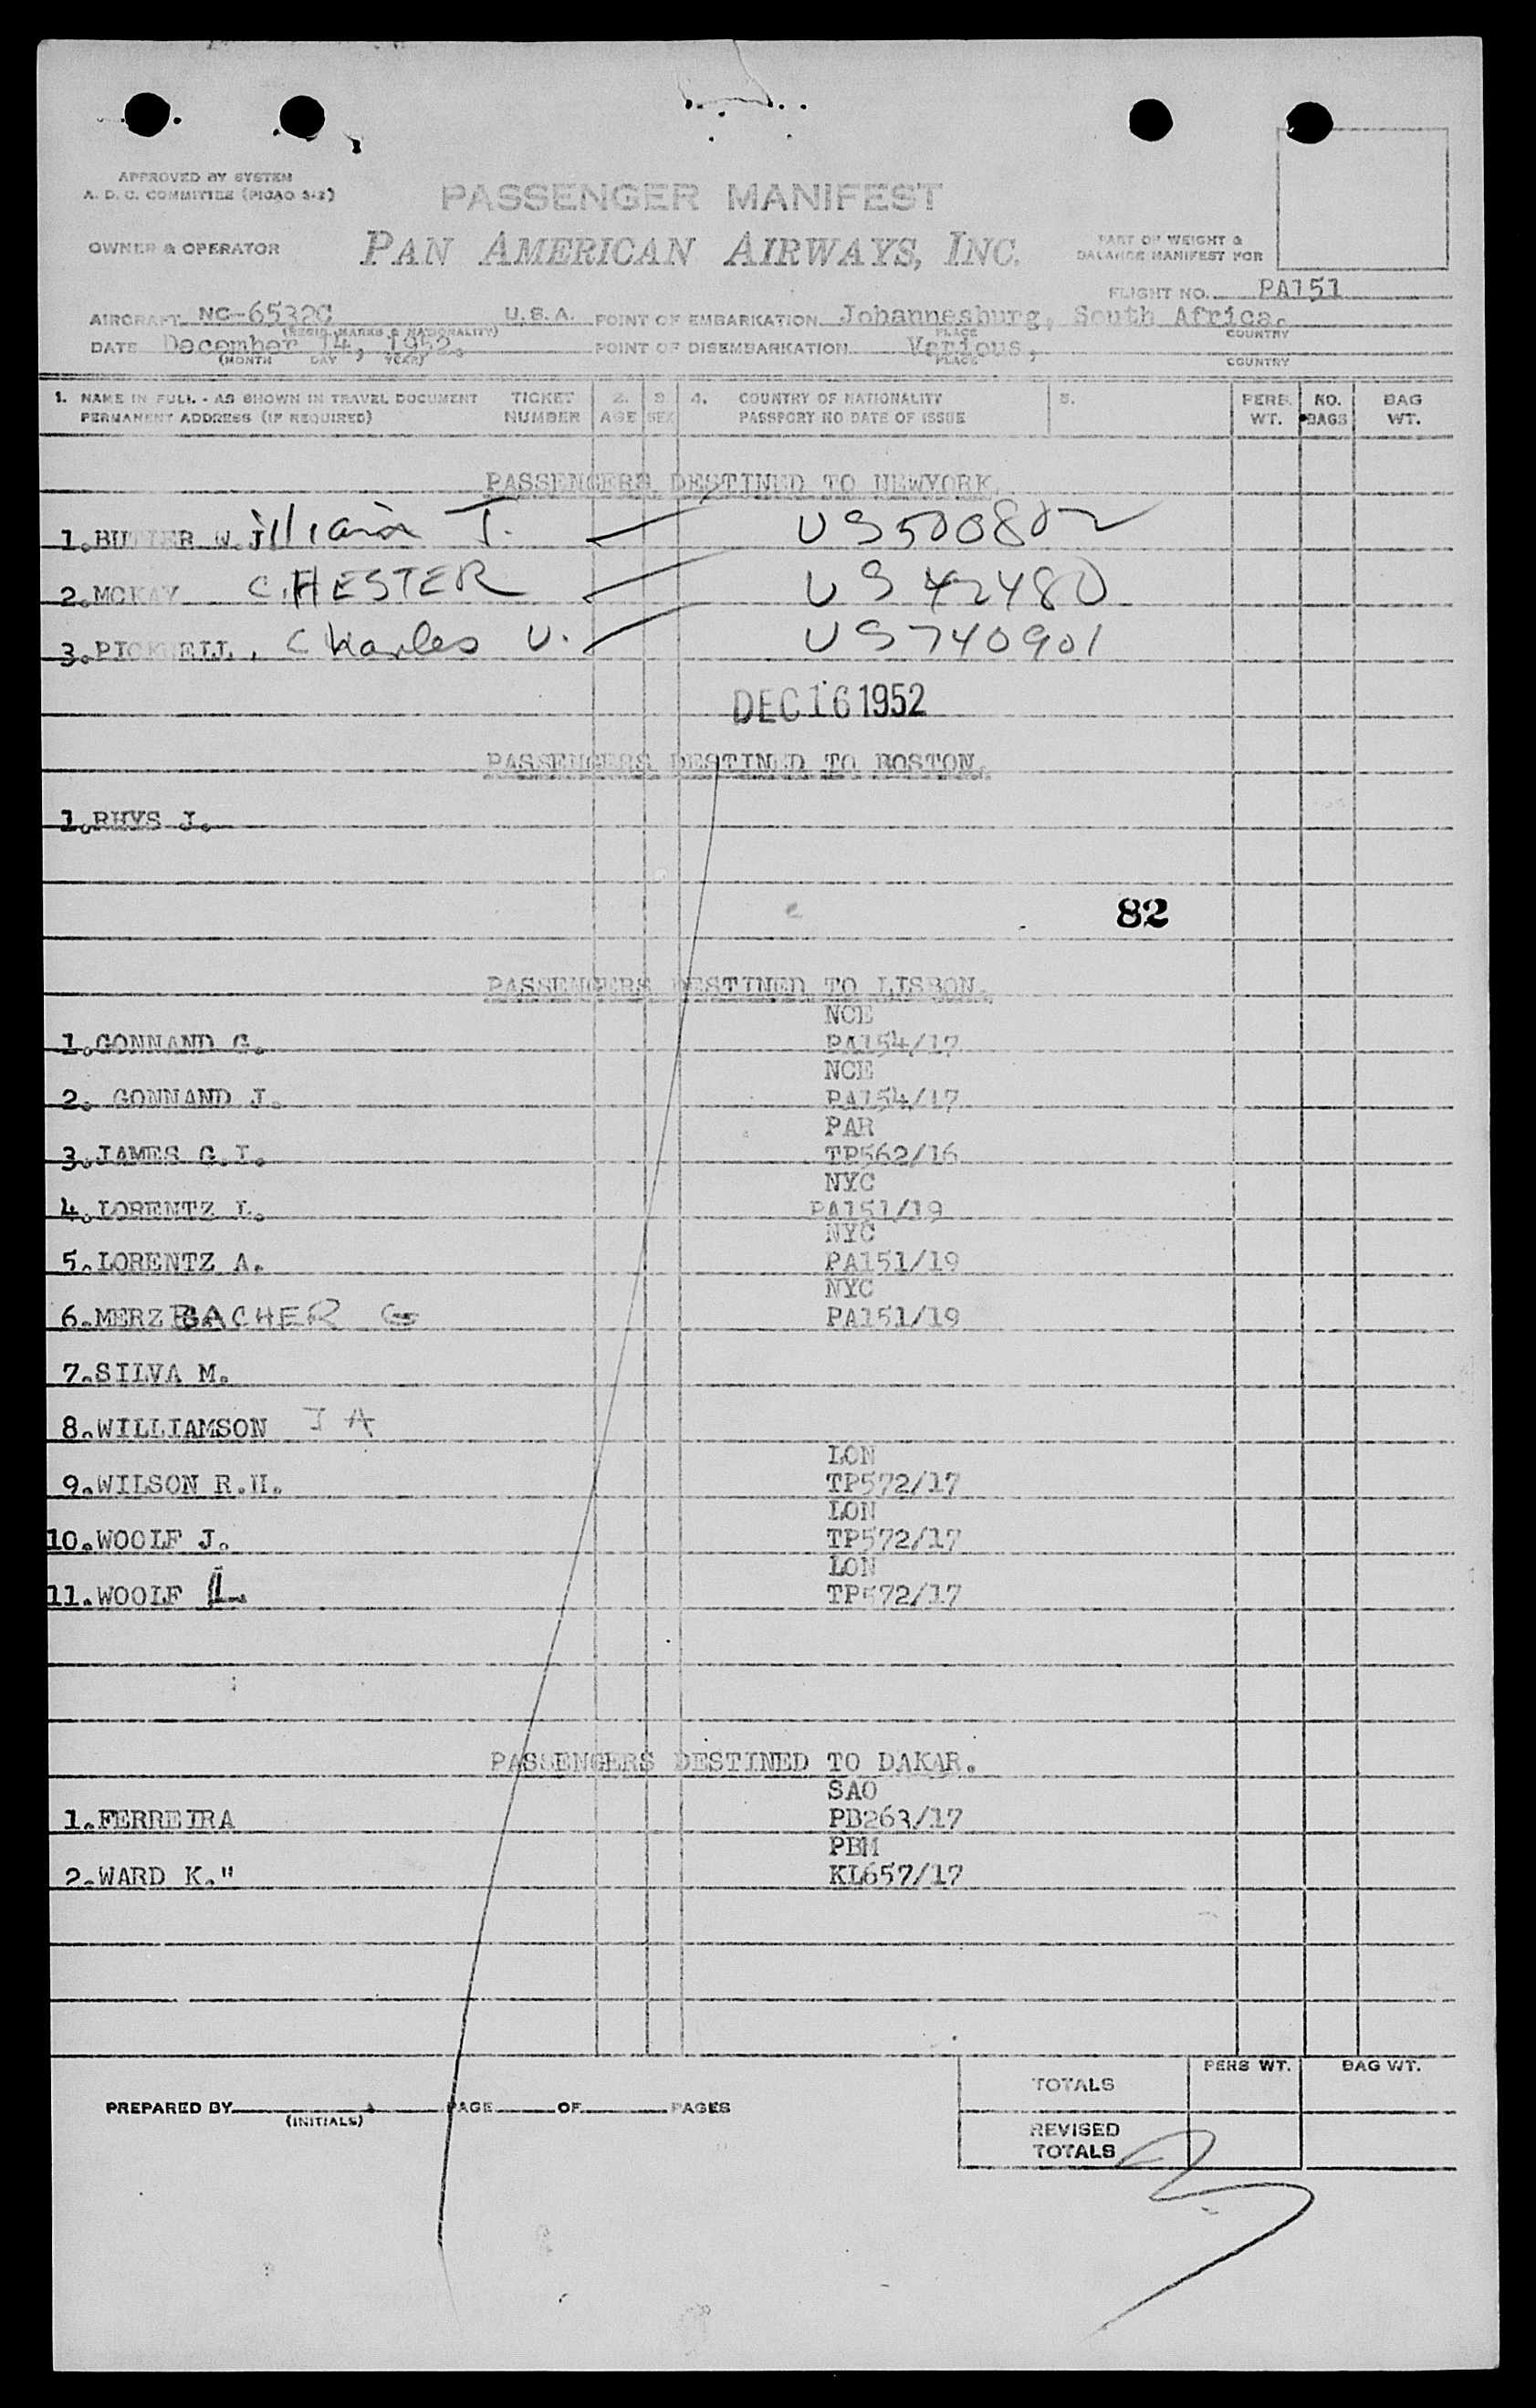 APPROVED BY SYSTEM
A. D. C. COMMITTEE (PICAO 3-2)
PASSENGER MANIFEST
OWNER & OPERATOR PAN AMERICAN AIRWAYS, INC.
PART OF WEIGHT &
BALANCE MANIFEST FOR
FLIGHT NO. PA151
AIRCRAFT NC-6532C U.S.A. POINT OF EMBARKATION Johannesburg, South Africa.
(REGIS. MARKS & NATIONALITY) PLACE COUNTRY
DATE December 14, 1952. POINT OF DISEMBARKATION Various,
(MONTH DAY YEAR) PLACE COUNTRY
1. NAME IN FULL - AS SHOWN IN TRAVEL DOCUMENT TICKET 2. 3. 4. COUNTRY OF NATIONALITY 5. PERS. NO. BAG
PERMANENT ADDRESS (IF REQUIRED) NUMBER AGE SEX PASSPORT NO DATE OF ISSUE WT. BAGS WT.
PASSENGERS DESTINED TO NEWYORK.
1.BUTLER W.J illiam T. US500802
2.MCKAY CHESTER US 42480
3.PICKNELL, Charles U. US740901
DEC 16 1952
PASSENGERS DESTINED TO BOSTON.
1.RHYS J.
82
PASSENGERS DESTINED TO LISBON.
NCE
1.GONNAND G. PA154/17
NCE
2. GONNAND J. PA154/17
PAR
3.JAMES G.I. TP562/16
NYC
4.LORENTZ L. PA151/19
NYC
5.LORENTZ A. PA151/19
NYC
6.MERZBACHER G PA151/19
7.SILVA M.
8.WILLIAMSON J A
LON
9.WILSON R.H. TP572/17
LON
10.WOOLF J. TP572/17
LON
11.WOOLF L TP572/17
PASSENGERS DESTINED TO DAKAR.
SAO
1.FERREIRA PB263/17
PBM
2.WARD K." KL657/17
PERS WT. BAG WT.
TOTALS
PREPARED BY PAGE OF PAGES
(INITIALS)
REVISED
TOTALS